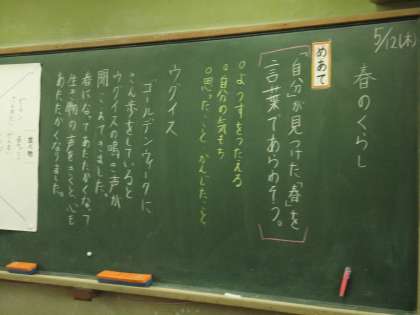 5/12(木)
春のくらし
めあて
「自分」が見つけた「春」を
言葉であらわそう。
○ようすをつたえる
○自分の気もち
○思ったこと かんじたこと
ウグイス
「ゴールデンウィークに、
さん歩をしていると
ウグイスの鳴き声が
聞こえてきました。
春になってあたたかくなって
生き物の声をきくと、心も
あたたかくなりました。